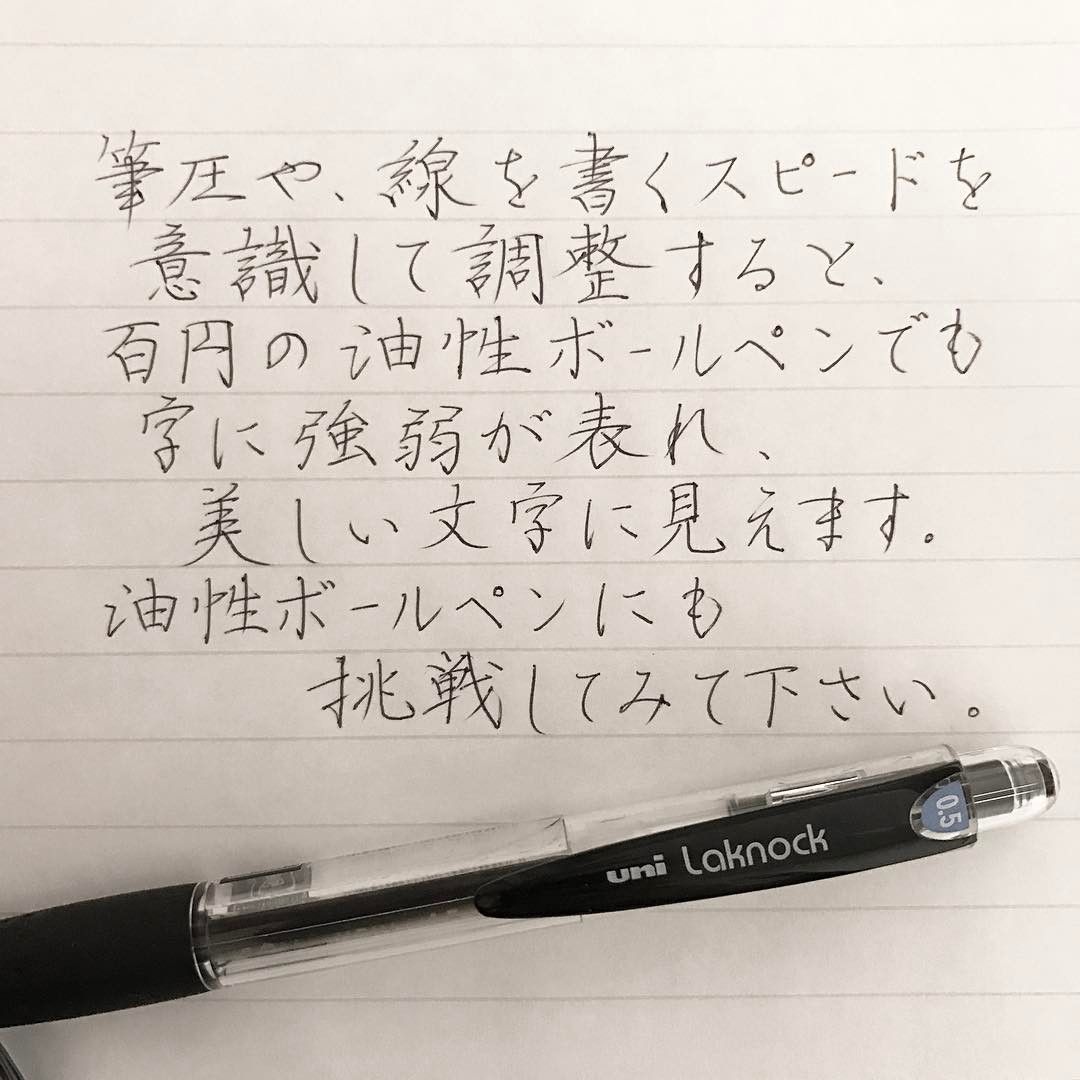 筆圧や、線を書くスピードを
意識して調整すると、
百円の油性ボールペンでも
字に強弱が表れ、
美しい文字に見えます。
油性ボールペンにも
挑戦してみて下さい。
uni Laknock
0.5